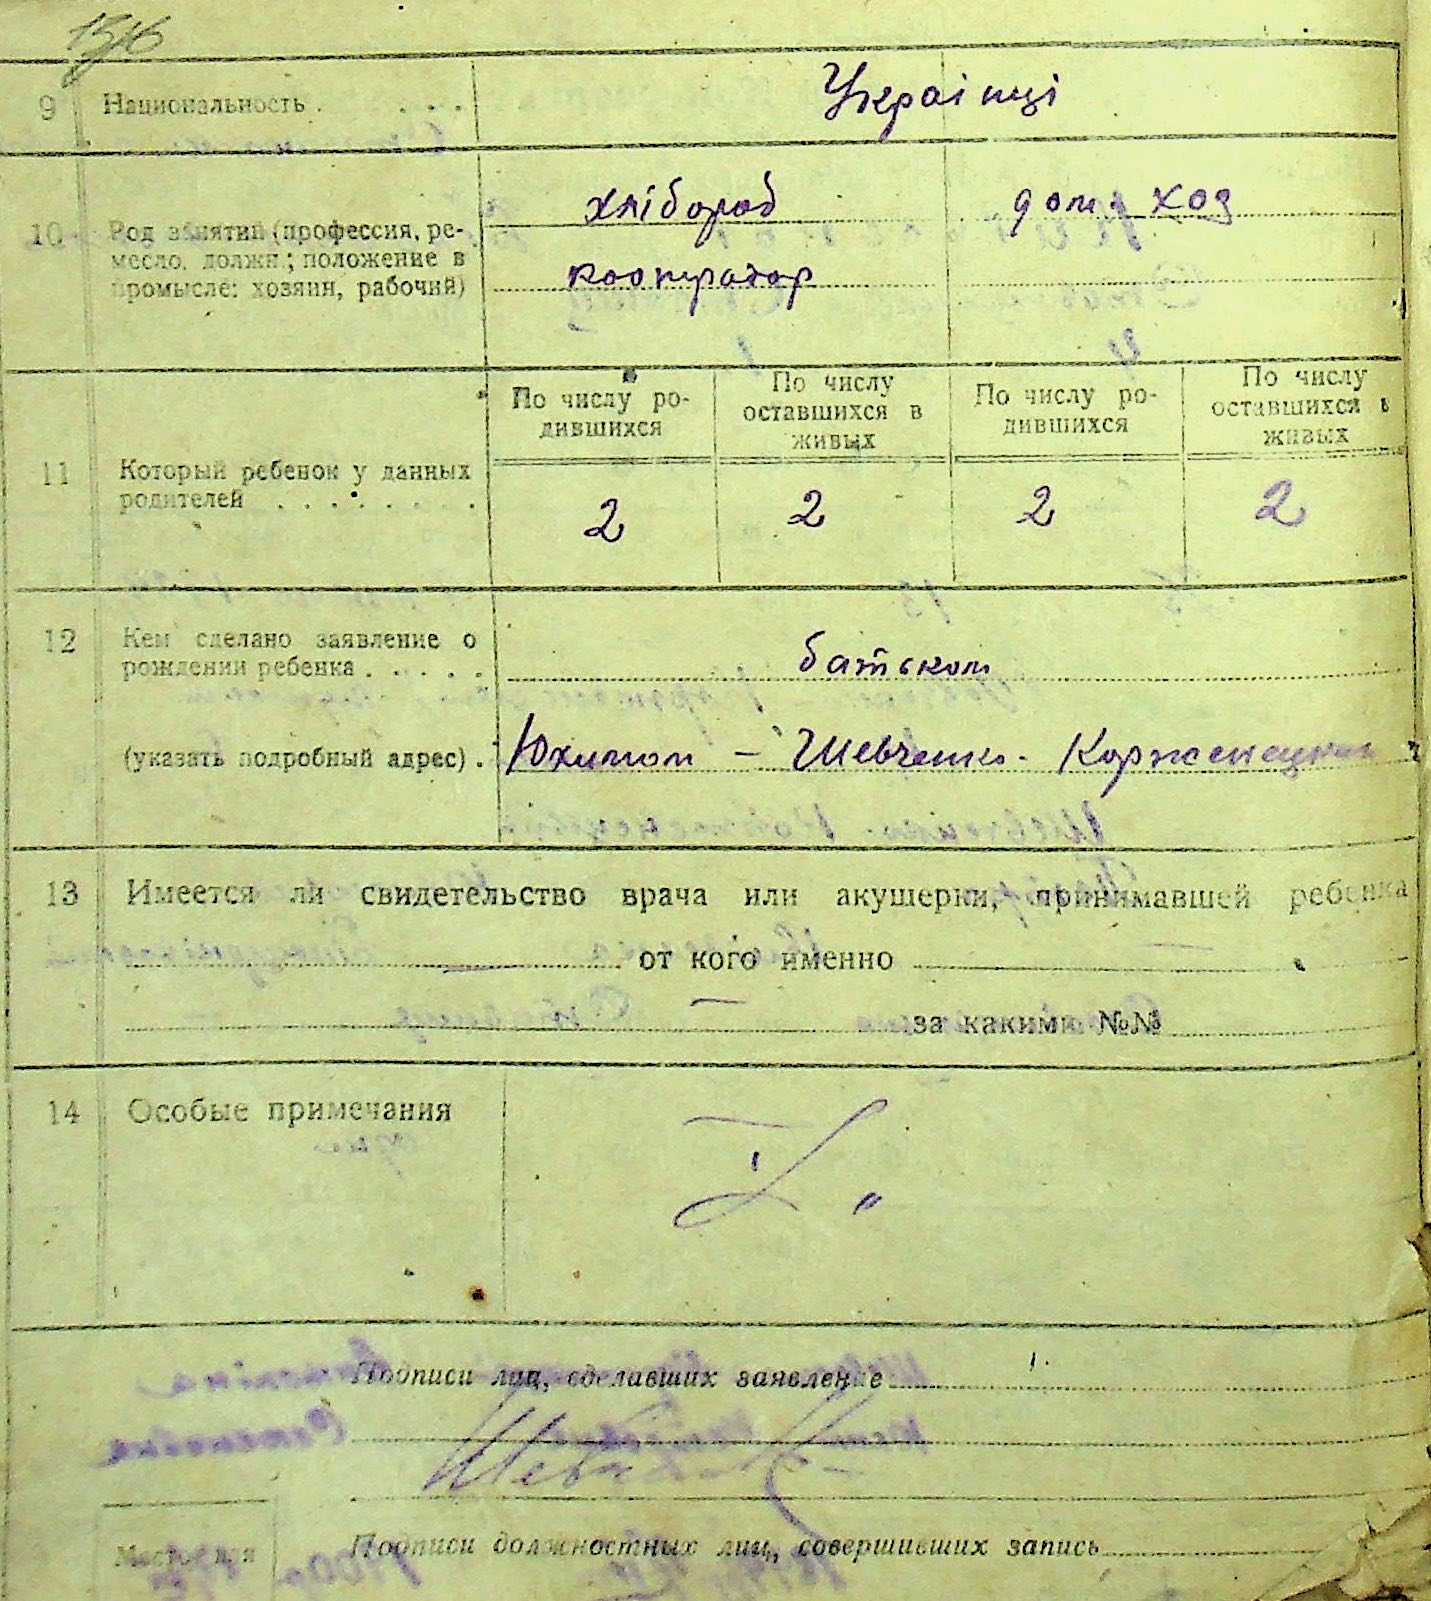 1516
9 Национальность . . . . Українці
10 Род занятий (профессия, ре-
месло, должн.; положение в
промысле: хозяин, рабочий)
хлібороб дом. ход
кооператор
11 Который ребенок у данных
родителей . . . . . . . .
По числу ро-
дившихся
По числу
оставшихся в
живых
По числу ро-
дившихся
По числу
оставшихся в
живых
2 2 2 2
12 Кем сделано заявление о
рождении ребенка . . . . . батьком
(указать подробный адрес) . Юхимом – Шевченко-Корженецким
13 Имеется ли свидетельство врача или акушерки, принимавшей ребенка
— от кого именно
— за какими №№
14 Особые примечания
Подписи лиц, сделавших заявление
Подписи должностных лиц, совершивших запись
Место для